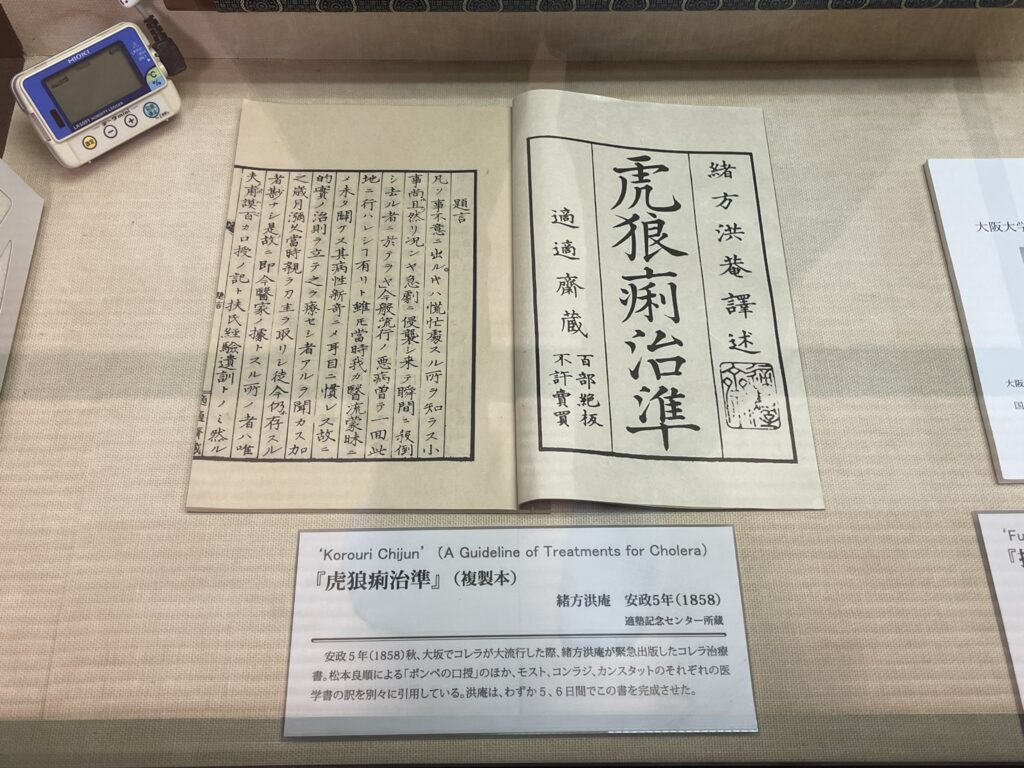 HIOKI
緒方洪菴譯述
虎狼痢治準
適適齋蔵
百部絶板
不許賣買
題言
凡ソ事不意ニ出ル時ハ慌忙處スル所ヲ知ラス小
事尚且然リ況ンヤ急劇ニ侵襲シ来テ瞬間ニ殺倒
シ去ル者ニ於テヲヤ今般流行ノ悪病曽テ一回此
地ニ行ハレシコ有リト雖モ當時我カ醫流蒙昧ニ
メ未タ開ケス其病性新奇ニメ耳目ニ慣レス故ニ
的實ノ治則ヲ立テ之ヲ療セシ者アルヲ聞カス加
之歳月瀰久當時親ラ刀圭ヲ取リシ徒今仍存スル
者尠ナシ是故ニ即今醫家ノ據トスル所ノ者ハ唯
夫甫謨百カロ授ノ記ト扶氏経驗遺訓トノミ然ル
題言
適適齋蔵
'Korouri Chijun' (A Guideline of Treatments for Cholera)
『虎狼痢治準』(複製本)
緒方洪庵 安政5年(1858)
適塾記念センター所蔵
安政5年(1858)秋、大坂でコレラが大流行した際、緒方洪庵が緊急出版したコレラ治療
書。松本良順による「ポンペの口授」のほか、モスト、コンラジ、カンスタットのそれぞれの医
学書の訳を別々に引用している。洪庵は、わずか5、6日間でこの書を完成させた。
大阪大学
大阪
国
'Fu
『